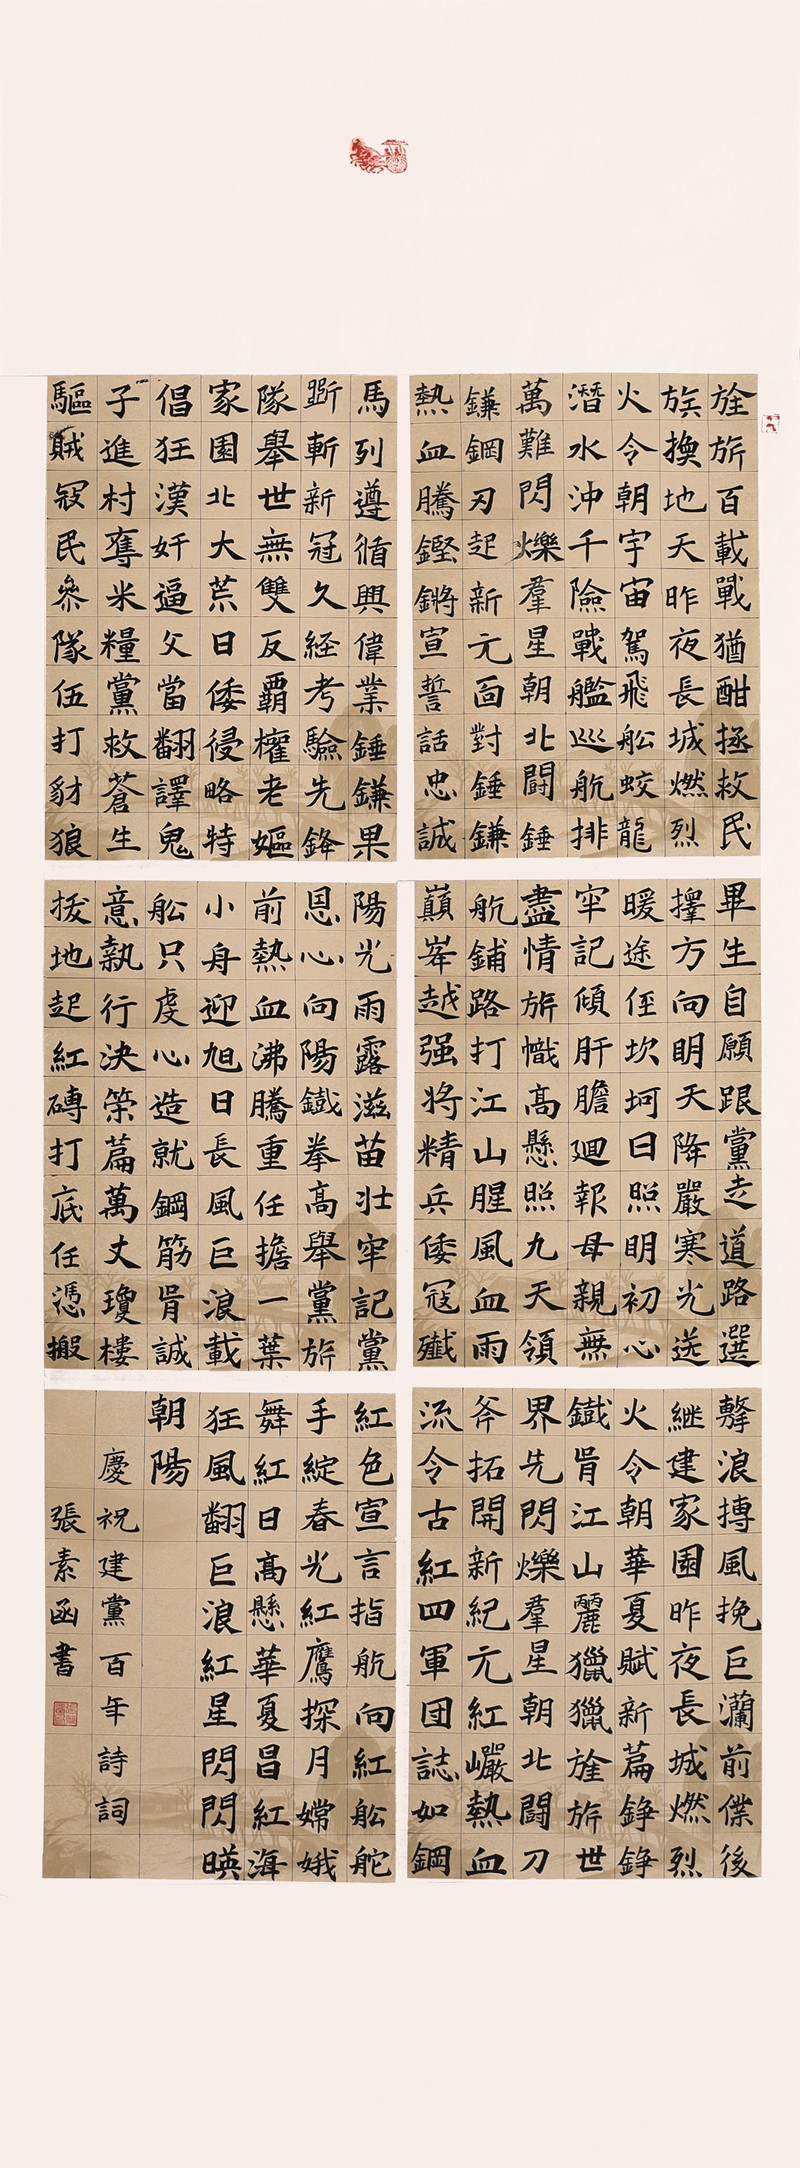 旌旂百載戰猶酣拯救民
族換地天昨夜長城燃烈
火令朝宇宙駕飛船蛟龍
潛水沖千險戰艦巡航排
萬難閃爍羣星朝北鬪錘
鎌鋼刃起新元面對錘鎌
熱血騰鏗鏘宣誓話忠誠
馬列遵循興偉業錘鎌果
斷斬新冠久経考驗先鋒
隊舉世無雙反霸權老嫗
家園北大荒日倭侵略特
倡狂漢奸逼父當翻譯鬼
子進村奪米糧黨救蒼生
驅賊冦民參隊伍打豺狼
畢生自願跟黨走道路選
擇方向明天降嚴寒光送
暖途徑坎坷日照明初心
牢記傾肝膽廻報母親無
盡情旂幟高懸照九天領
航鋪路打江山腥風血雨
巔峯越强將精兵倭冦殲
陽光雨露滋苗壯牢記黨
恩心向陽鐵拳高舉黨旂
前熱血沸騰重任擔一葉
小舟迎旭日長風巨浪載
船只虔心造就鋼筋骨誠
意執行決策篇萬丈瓊樓
拔地起紅磚打底任憑搬
擊浪搏風挽巨瀾前僕後
継建家園昨夜長城燃烈
火令朝華夏賦新篇錚錚
鐵骨江山麗獵獵旌旂世
界先閃爍羣星朝北鬪刀
斧拓開新紀元紅巖熱血
流令古紅四軍团誌如鋼
紅色宣言指航向紅船舵
手綻春光紅鷹探月嫦娥
舞紅日高懸華夏昌紅海
狂風翻巨浪紅星閃閃暎
朝陽
慶祝建黨百年詩詞
張素函書